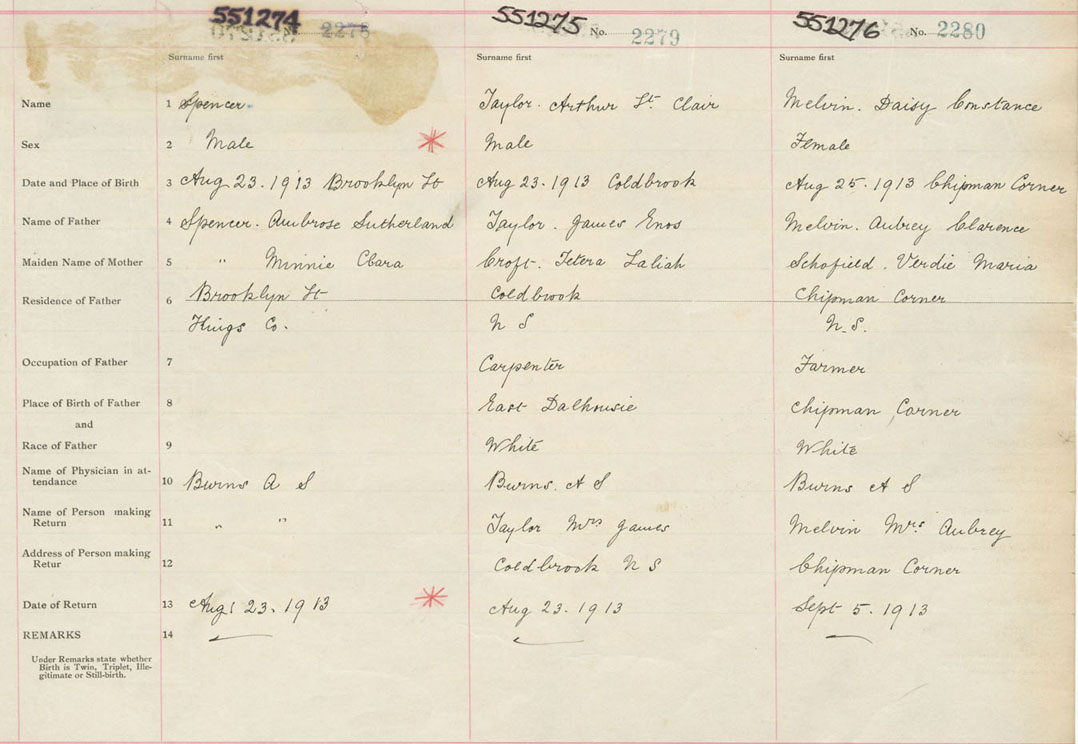 551274 2278 551275 No. 2279 551276 No. 2280
Surname first Surname first Surname first
Name 1 Spencer Taylor. Arthur St. Clair Melvin. Daisy Constance
Sex 2 Male Male Female
Date and Place of Birth 3 Aug 23. 1913 Brooklyn St Aug 23. 1913 Coldbrook Aug 25. 1913 Chipman Corner
Name of Father 4 Spencer. Ambrose Sutherland Taylor. James Enos Melvin. Aubrey Clarence
Maiden Name of Mother 5 " Minnie Clara Croft. Tetera Laliah Schofield. Verdie Maria
Residence of Father 6 Brooklyn St Coldbrook Chipman Corner
Kings Co. N S N.S.
Occupation of Father 7 Carpenter Farmer
Place of Birth of Father 8 East Dalhousie Chipman Corner
and
Race of Father 9 White White
Name of Physician in at-
tendance 10 Burns A S Burns. A S Burns A S
Name of Person making
Return 11 " " Taylor Mrs James Melvin Mrs. Aubrey
Address of Person making
Retur 12 Coldbrook N S Chipman Corner
Date of Return 13 Aug 23. 1913 Aug 23. 1913 Sept 5. 1913
REMARKS 14
Under Remarks state whether
Birth is Twin, Triplet, Ille-
gitimate or Still-birth.